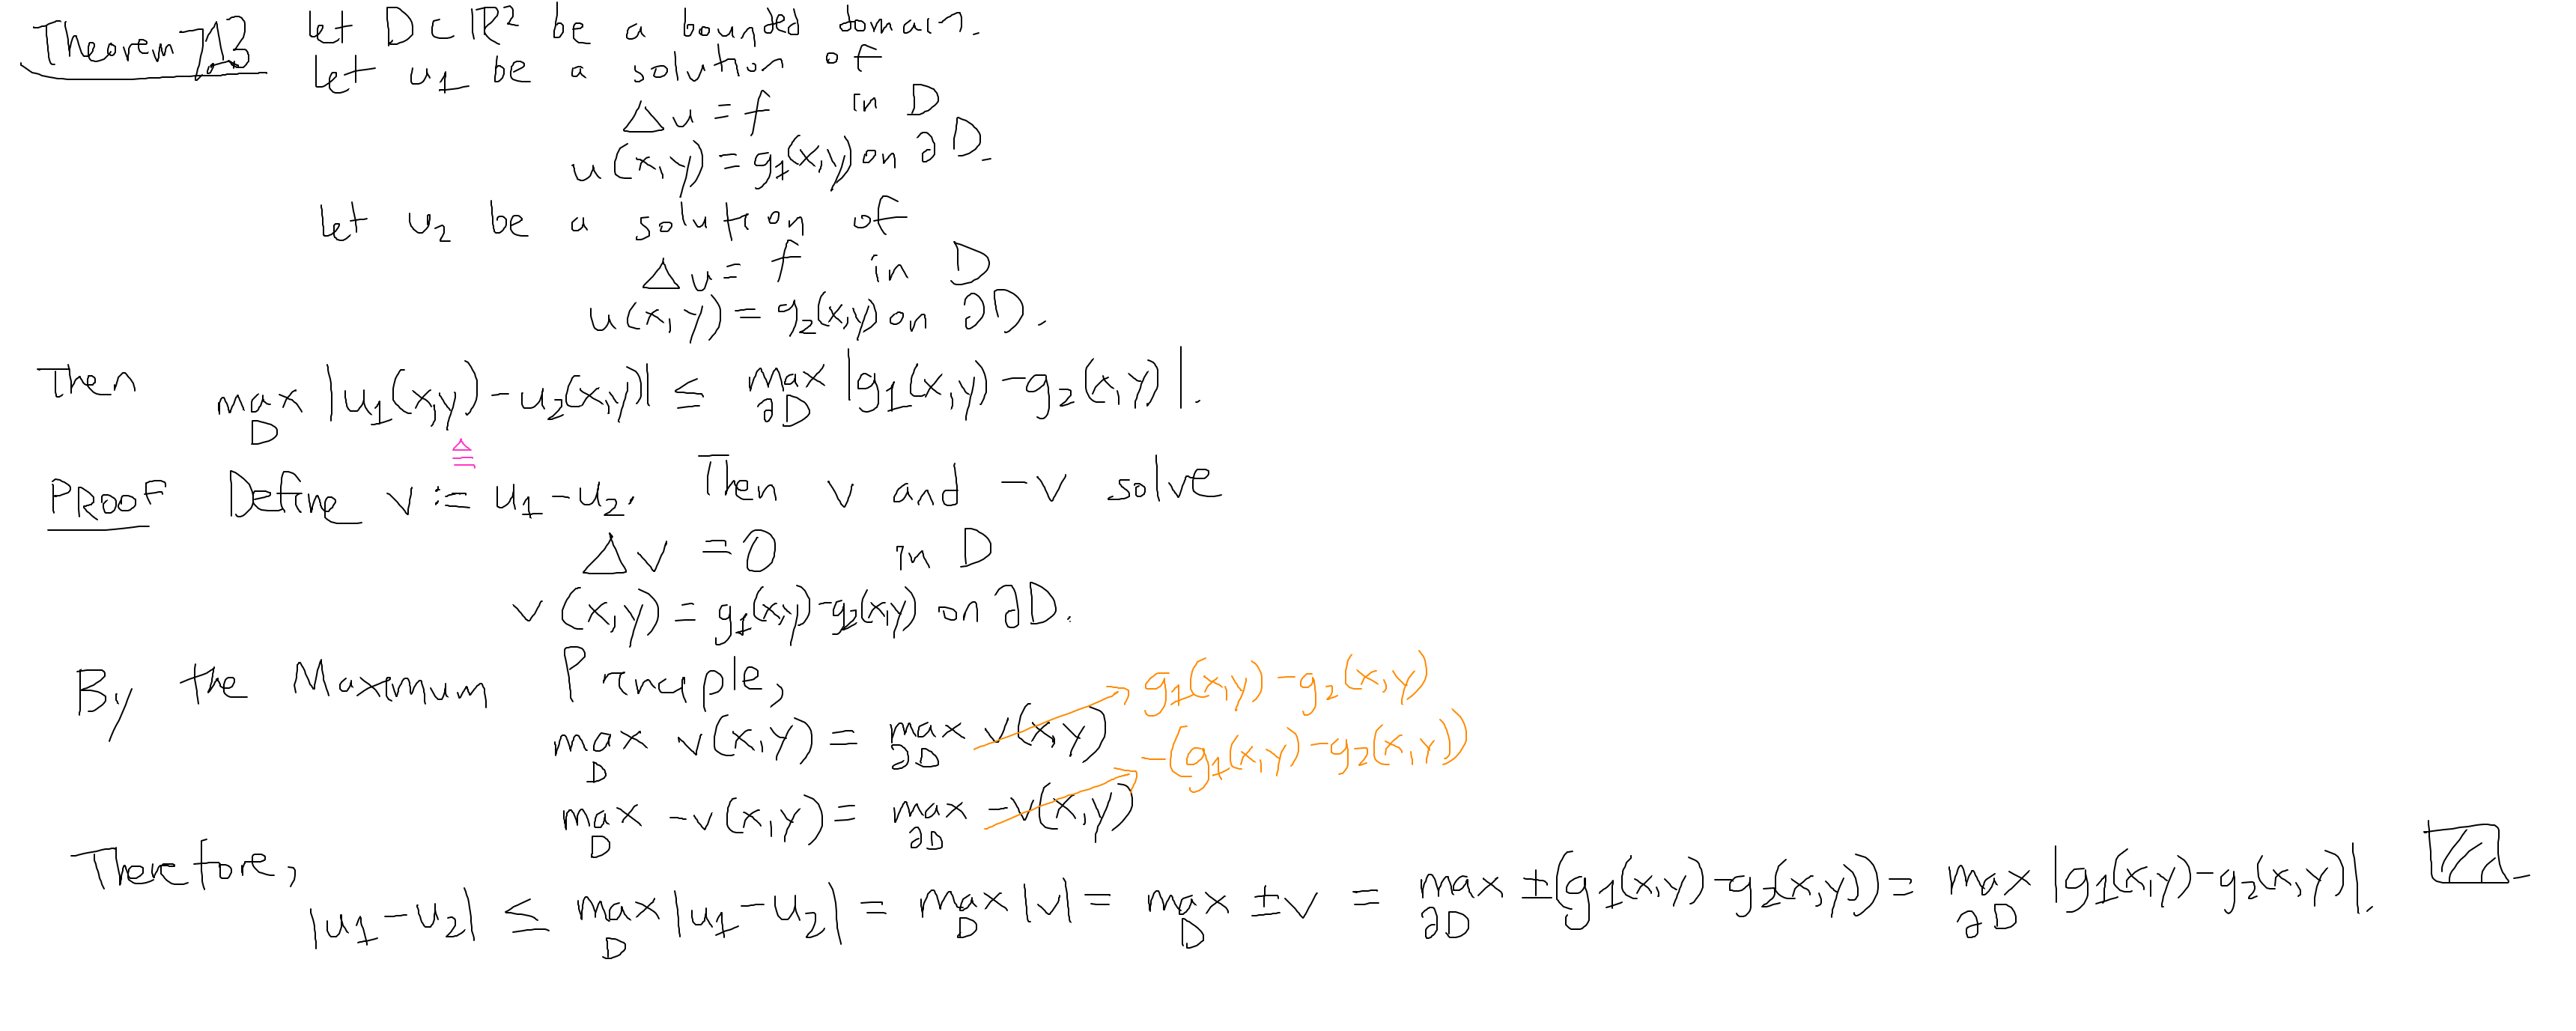 Theorem 7.13 let D ⊂ ℝ² be a bounded domain.
Let u₁ be a solution of
Δu = f in D
u(x,y) = g₁(x,y) on ∂D.
Let u₂ be a solution of
Δu = f in D
u(x,y) = g₂(x,y) on ∂D.
Then max_D |u₁(x,y) - u₂(x,y)| ≤ max_∂D |g₁(x,y) - g₂(x,y)|.
≙
PROOF Define v := u₁ - u₂. Then v and -v solve
Δv = 0 in D
v(x,y) = g₁(x,y) - g₂(x,y) on ∂D.
By the Maximum Principle,
max_D v(x,y) = max_∂D v(x,y) → g₁(x,y) - g₂(x,y)
max_D -v(x,y) = max_∂D -v(x,y) → -(g₁(x,y) - g₂(x,y))
Therefore,
|u₁ - u₂| ≤ max_D |u₁ - u₂| = max_D |v| = max_D ±v = max_∂D ±(g₁(x,y) - g₂(x,y)) = max_∂D |g₁(x,y) - g₂(x,y)|.